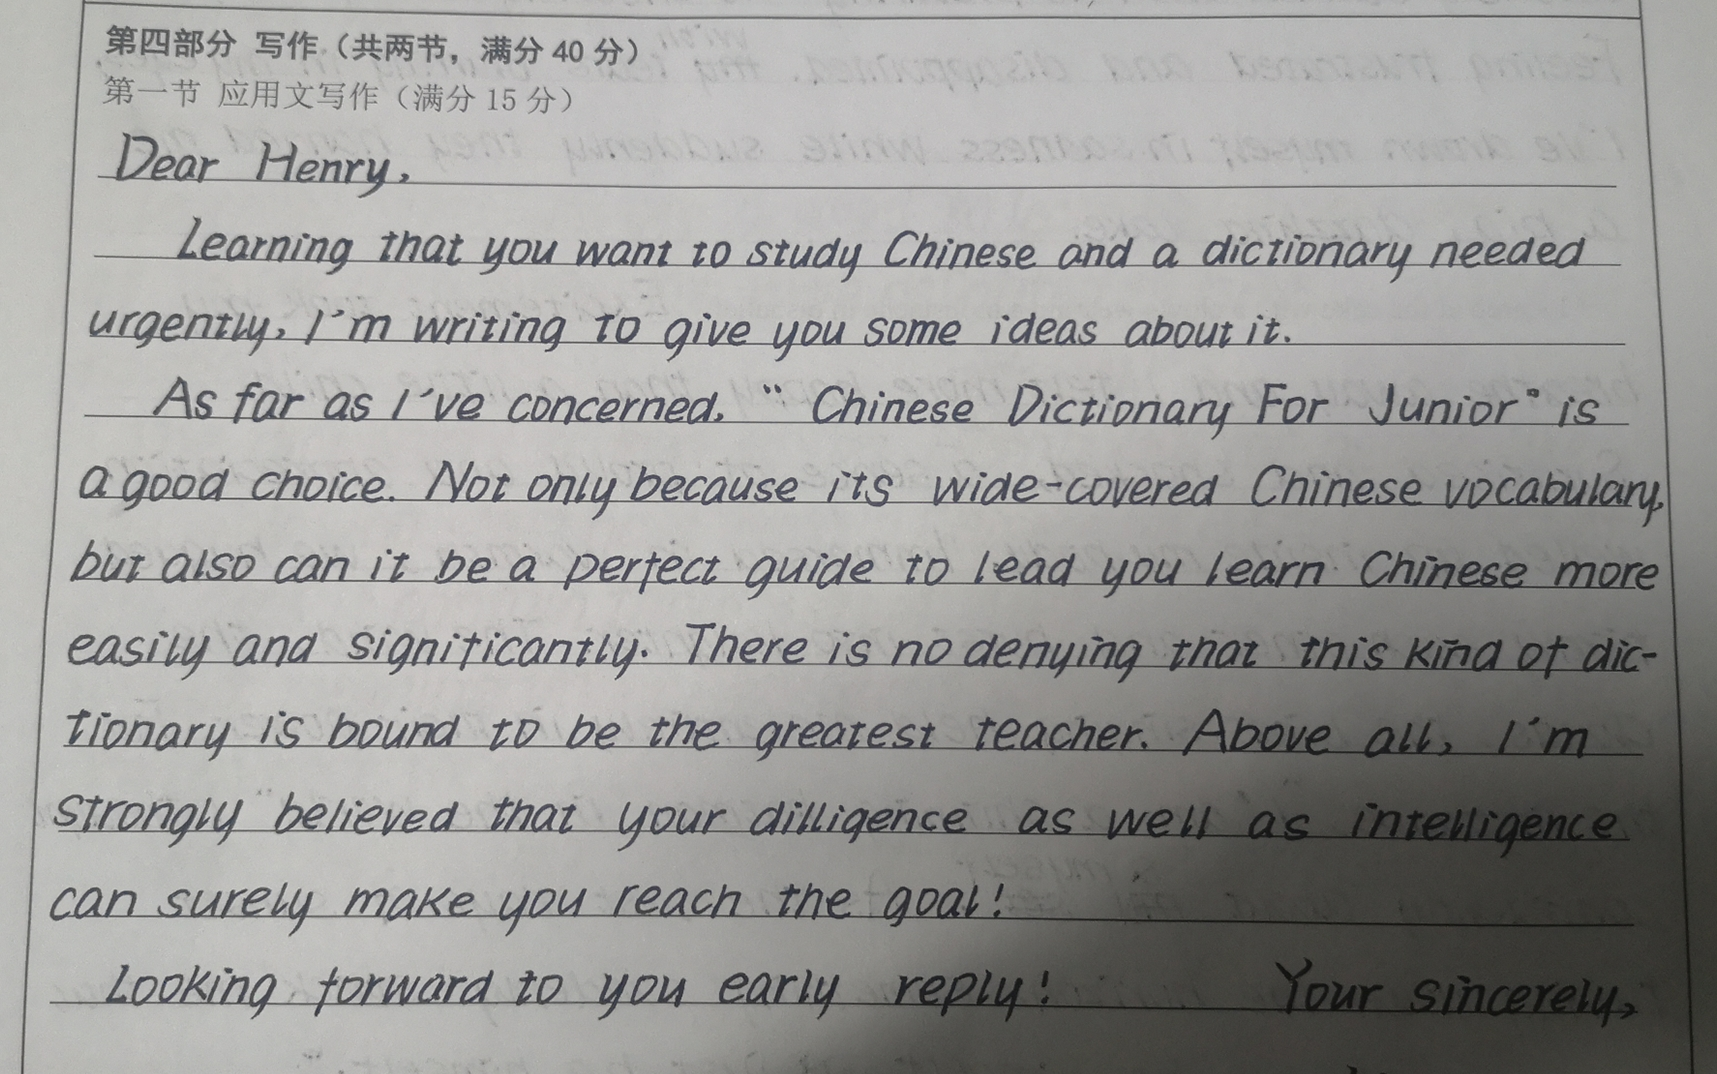 第四部分 写作（共两节，满分 40 分）
第一节 应用文写作（满分 15 分）
Dear Henry,
Learning that you want to study Chinese and a dictionary needed
urgently, I'm writing to give you some ideas about it.
As far as I've concerned, "Chinese Dictionary For Junior" is
a good choice. Not only because its wide-covered Chinese vocabulary,
but also can it be a perfect guide to lead you learn Chinese more
easily and significantly. There is no denying that this kind of dic-
tionary is bound to be the greatest teacher. Above all, I'm
strongly believed that your dilligence as well as intelligence
can surely make you reach the goal!
Looking forward to you early reply! Your sincerely,